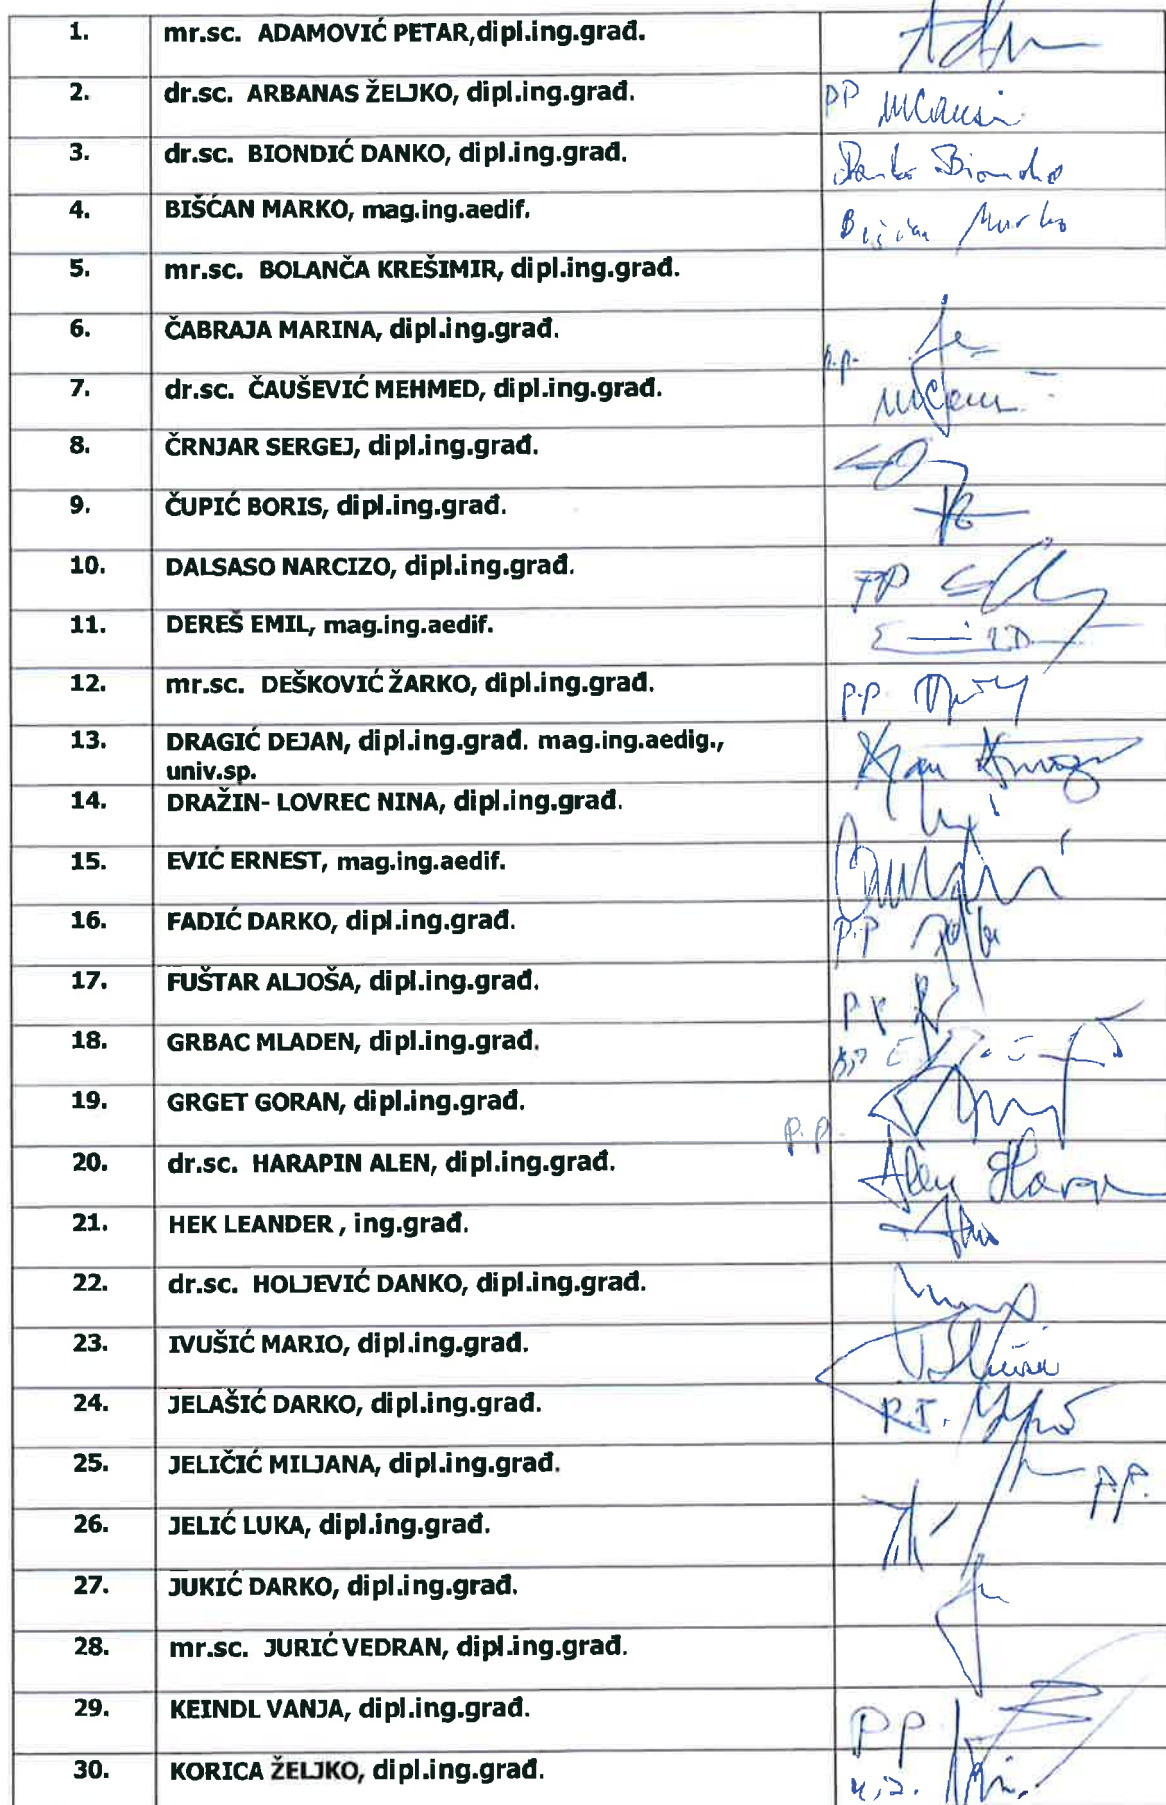 1. mr.sc. ADAMOVIĆ PETAR,dipl.ing.građ.
2. dr.sc. ARBANAS ŽELJKO, dipl.ing.građ. PP
3. dr.sc. BIONDIĆ DANKO, dipl.ing.građ. Danko Biondić
4. BIŠĆAN MARKO, mag.ing.aedif. Bišćan Marko
5. mr.sc. BOLANČA KREŠIMIR, dipl.ing.građ.
6. ČABRAJA MARINA, dipl.ing.građ.
7. dr.sc. ČAUŠEVIĆ MEHMED, dipl.ing.građ. p.p.
8. ČRNJAR SERGEJ, dipl.ing.građ.
9. ČUPIĆ BORIS, dipl.ing.građ.
10. DALSASO NARCIZO, dipl.ing.građ. PP
11. DEREŠ EMIL, mag.ing.aedif.
12. mr.sc. DEŠKOVIĆ ŽARKO, dipl.ing.građ. p.p.
13. DRAGIĆ DEJAN, dipl.ing.građ. mag.ing.aedig.,
univ.sp.
14. DRAŽIN- LOVREC NINA, dipl.ing.građ.
15. EVIĆ ERNEST, mag.ing.aedif.
16. FADIĆ DARKO, dipl.ing.građ. p.p
17. FUŠTAR ALJOŠA, dipl.ing.građ.
18. GRBAC MLADEN, dipl.ing.građ.
19. GRGET GORAN, dipl.ing.građ.
p.p.
20. dr.sc. HARAPIN ALEN, dipl.ing.građ. Alen Harapin
21. HEK LEANDER , ing.građ.
22. dr.sc. HOLJEVIĆ DANKO, dipl.ing.građ.
23. IVUŠIĆ MARIO, dipl.ing.građ.
24. JELAŠIĆ DARKO, dipl.ing.građ.
25. JELIČIĆ MILJANA, dipl.ing.građ. p.p.
26. JELIĆ LUKA, dipl.ing.građ.
27. JUKIĆ DARKO, dipl.ing.građ.
28. mr.sc. JURIĆ VEDRAN, dipl.ing.građ.
29. KEINDL VANJA, dipl.ing.građ. PP
30. KORICA ŽELJKO, dipl.ing.građ.